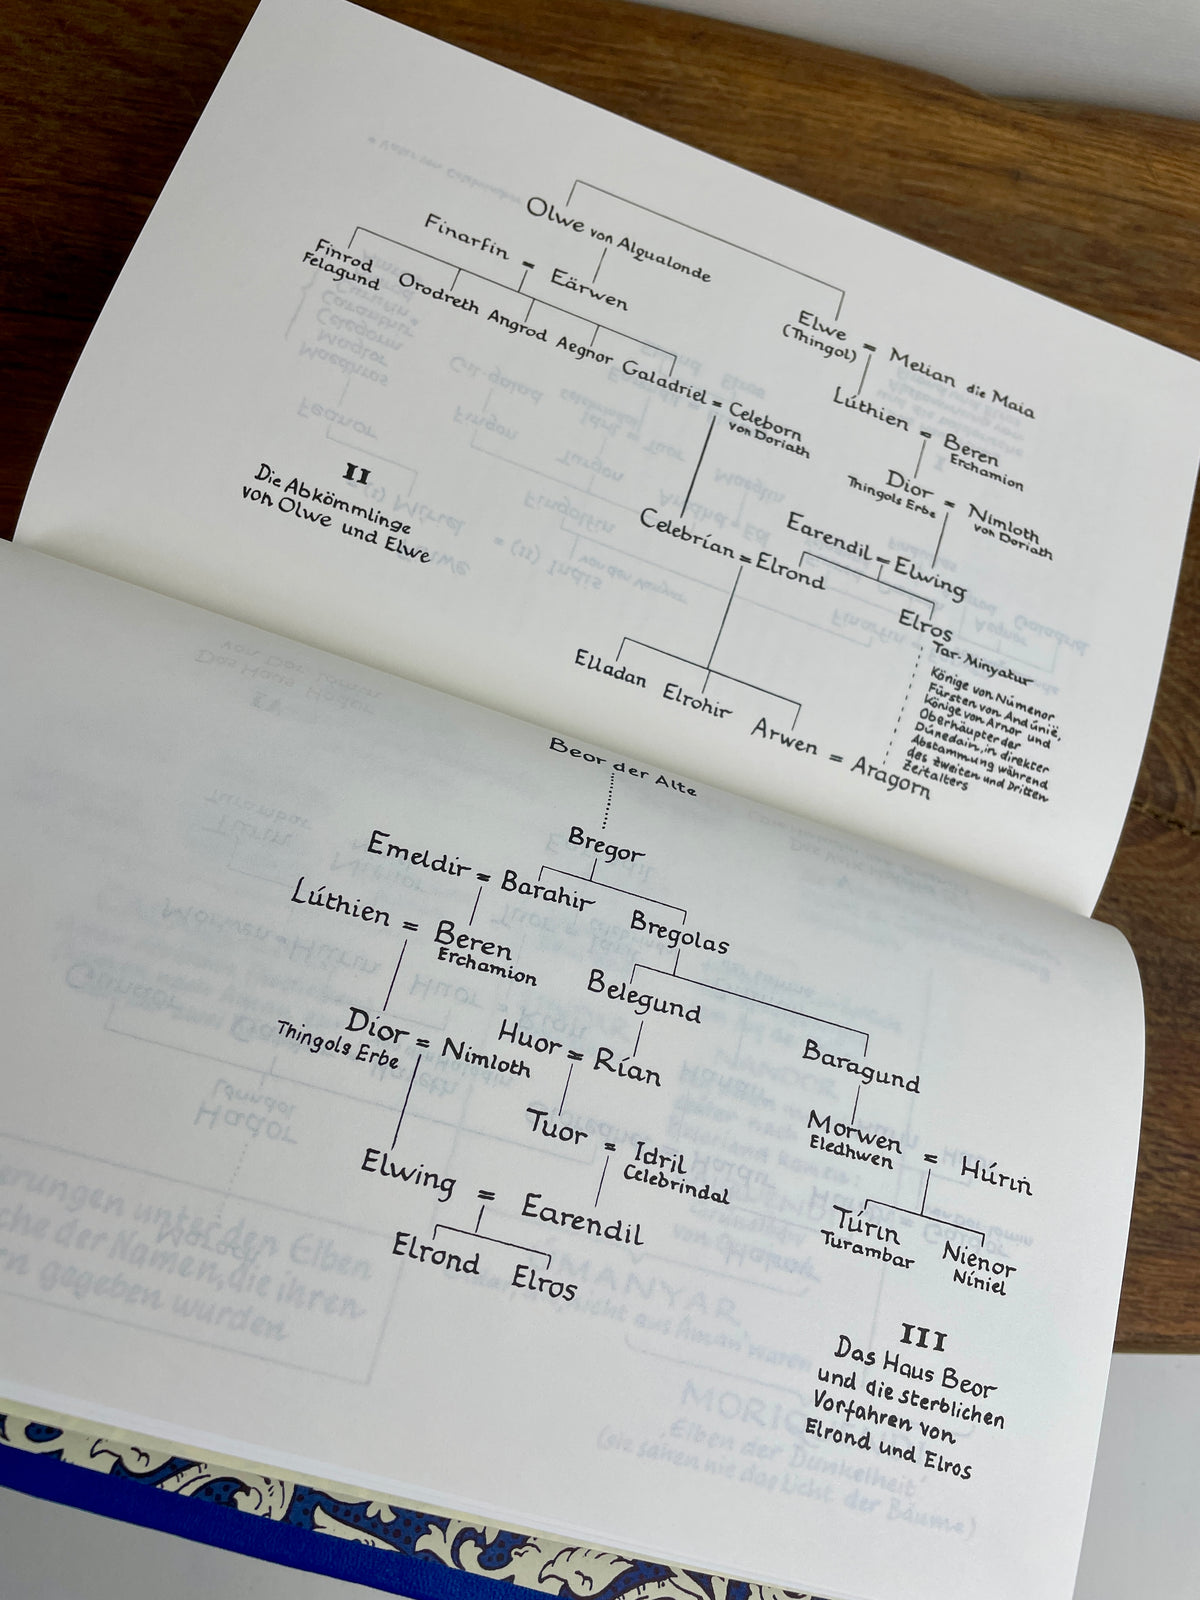 Olwe von Alqualonde
Finarfin = Eärwen
Finrod
Felagund
Orodreth
Angrod
Aegnor
Galadriel = Celeborn
von Doriath
Elwe
(Thingol) = Melian die Maia
Lúthien = Beren
Erchamion
Dior = Nimloth
Thingols Erbe
von Doriath
Earendil = Elwing
Celebrían = Elrond
Elros
Tar-Minyatur
Könige von Númenor
Fürsten von Andúnië,
Könige von Arnor und
Oberhäupter der
Dúnedain, in direkter
Abstammung während
des Zweiten und Dritten
Zeitalters
Elladan
Elrohir
Arwen = Aragorn
II
Die Abkömmlinge
von Olwe und Elwe
Beor der Alte
Bregor
Emeldir = Barahir
Bregolas
Lúthien = Beren
Erchamion
Belegund
Baragund
Dior = Nimloth
Thingols Erbe
Huor = Rían
Morwen = Húrin
Eledhwen
Tuor = Idril
Celebrindal
Elwing = Earendil
Túrin
Turambar
Nienor
Níniel
Elrond
Elros
III
Das Haus Beor
und die sterblichen
Vorfahren von
Elrond und Elros
MORIQ
Elben der Dunkelheit
(sie sahen nie das Licht der Bäume)